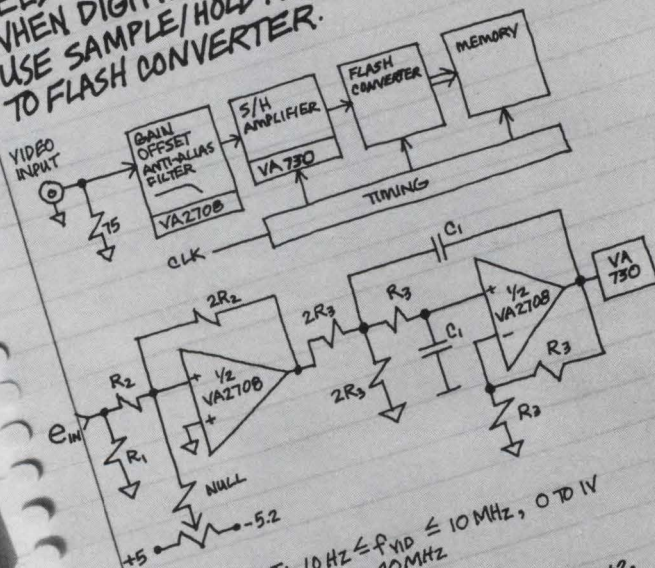 WHEN DIGIT
USE SAMPLE/HOLD
TO FLASH CONVERTER.
VIDEO
INPUT
75
GAIN
OFFSET
ANTI-ALIAS
FILTER
VA2708
S/H
AMPLIFIER
VA730
FLASH
CONVERTER
MEMORY
TIMING
CLK
C1
2R2
2R3
R3
C1
1/2
VA2708
+
-
VA
730
R3
R2
+
1/2
VA2708
+
2R3
R3
eIN
R1
NULL
+5
-5.2
10 Hz ≤ fVID ≤ 10 MHz, 0 TO 1V
0 MHz